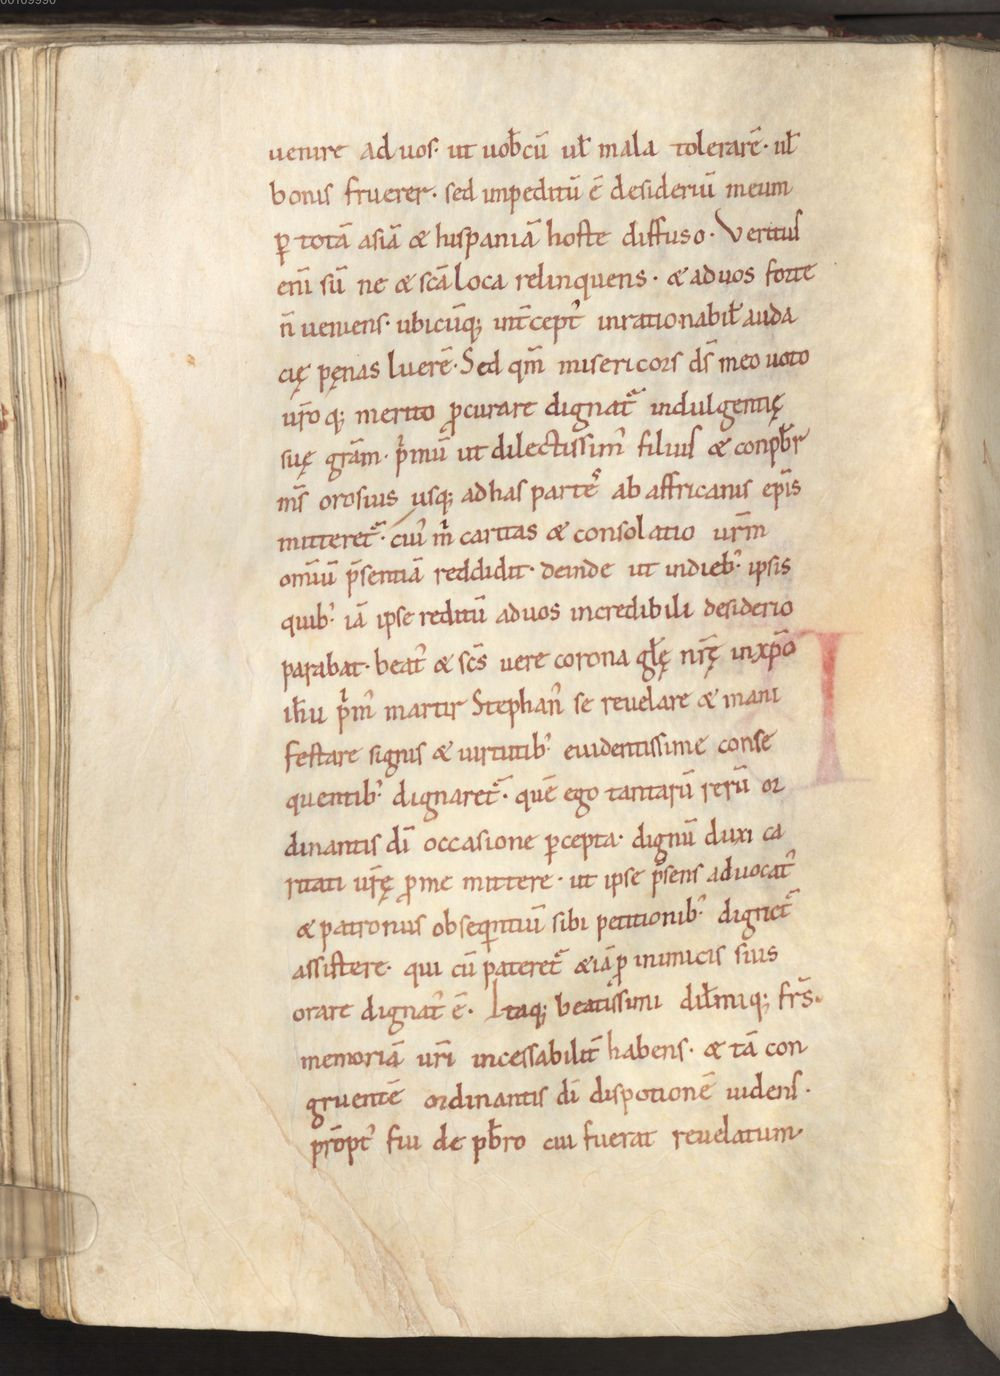 00109990
uenire ad uos· ut uob̄cū ul̄ mala tolerarē· ul̄
bonis fruerer· sed inpeditū ē desideriū meum
ꝑ totā asiā & hispaniā hoste diffuso· Veritus
eni̅ su̅ ne & sc̅a loca relinquens· & ad uos forte
n̅ ueniens· ubicu̅q; int̅cept᾿ inrationabil̅ auda
cię pęnas luere̅· Sed qm̅ misericors ds̅ meo uoto
ur̅o q; merito ꝓcurare dignat᷑ indulgentię
suę gra̅m· p̍mu̅ ut dilectissim᾿ filius & conpb̅r
ms̅ orosius usq; ad has partes ab affricanis ep̅is
mitteret᷑· cui᾿ m̍ caritas & consolatio ur̅m
om̅iu̅ p̅sentia̅ reddidit· deinde ut in dieb᾿ ipsis
quib᾿ ia̅ ipse reditu̅ ad uos incredibili desiderio
parabat· beat᾿ & sc̅s uere corona gl̅ę nr̅ę in xp̅o
ih̅u p̍m᾿ martir Stephan᾿ se reuelare & mani
festare signis & uirtutib᾿ euidentissime conse
quentib᾿ dignaret᷑· que̅ ego tantaru̅ reru̅ or
dinantis di̅ occasione ꝑcepta· dignu̅ duxi ca
ritati ur̅ę ꝓ me mittere· ut ipse p̅sens aduocat᾿
& patronus obsequentiu̅ sibi petitionib᾿ dignet᷑
assistere· qui cu̅ pateret᷑ & ia̅ ꝓ inimicis suis
orare dignat᾿ ē· Itaq; beatissimi dil̅mi q; fr̅s·
memoria̅ ur̅i incessabilit̅ habens· & ta̅ con
gruente̅ ordinantis di̅ dispotione̅ uidens·
pro̅pt᾿ fui de pb̅ro cui fuerat reuelatum·